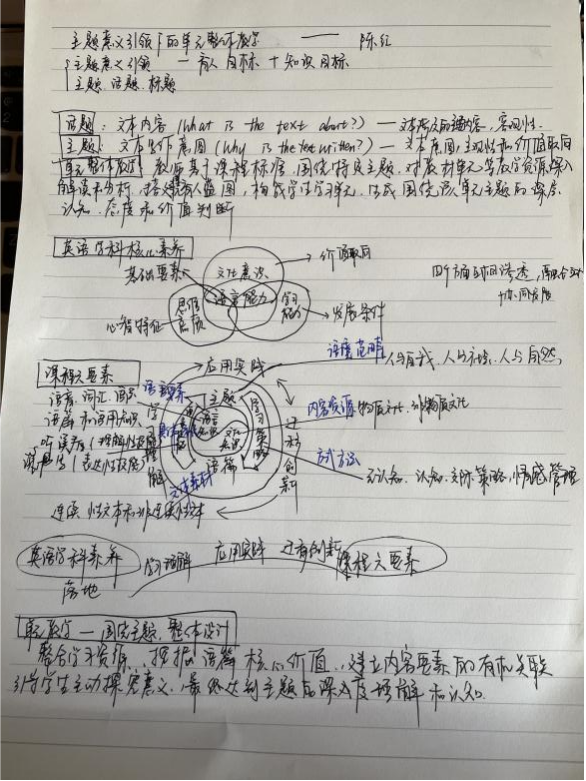 主题意义引领下的单元整体教学 —— 陈红
主题意义引领 — 育人目标 + 知识目标
主题 话题 标题
话题: 文本内容 (What is the text about?) — 客观性
主题: 文本写作意图 (Why is the text written?) — 主观性和价值取向
单元整体教学 教师基于课程标准,围绕特定主题,对教材单元等教学资源深入
解读和分析,构成围绕该单元主题的深层
认知、态度和价值判断
英语学科核心素养
价值取向
基础要素
文化意识
语言能力
思维品质
学习能力
心智特征
发展条件
四个方面互相渗透
课程六要素
应用实践
语境范畴 人与自我、人与社会、人与自然
语音、词汇、语法
语篇和语用知识
主题
语篇
学习策略
文化知识
学习理解
迁移创新
内容 物质文化、非物质文化
(理解性技能)
(表达性技能)
元认知、认知、交际策略、情感管理
连续性文本和非连续性文本
英语学科素养
落地
学习理解
应用实践
迁移创新
课程六要素
单元教学 — 围绕主题,整体设计
整合学习资源、挖掘语篇核心价值、建立内容要素的有机关联
引导学生主动探究意义,最终达到主题的深度理解和认知